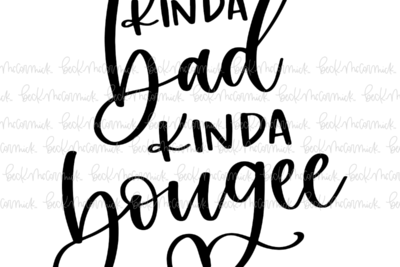 KINDA
bad
KINDA
bougee